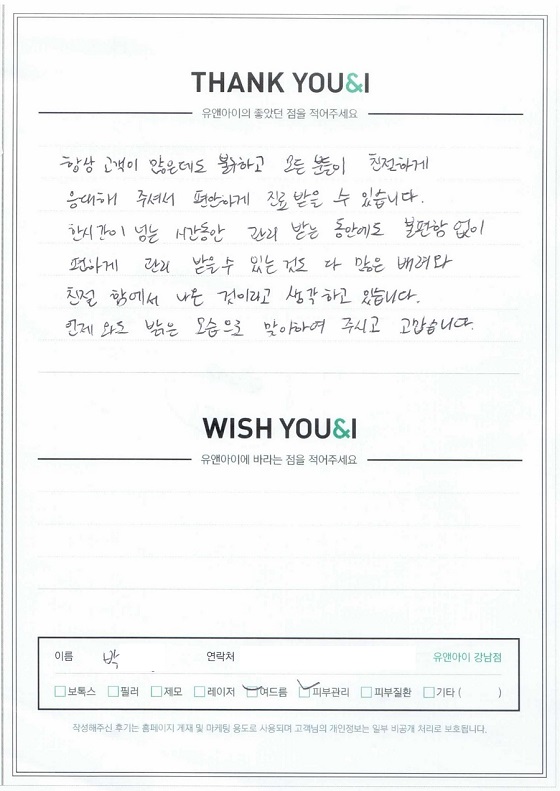 THANK YOU&I
유앤아이의 좋았던 점을 적어주세요
항상 고객이 많은데도 불구하고 모든 분들이 친절하게
응대해 주셔서 편안하게 진료 받을 수 있습니다.
한시간이 넘는 시간동안 관리 받는 동안에도 불편함 없이
편하게 관리 받을 수 있는 것도 다 많은 배려와
친절 함에서 나온 것이라고 생각하고 있습니다.
언제 와도 밝은 모습으로 맞이하여 주시고 고맙습니다.
WISH YOU&I
유앤아이에 바라는 점을 적어주세요
이름 박 연락처 유앤아이 강남점
보톡스 필러 제모 레이저 여드름 피부관리 피부질환 기타 ( )
작성해주신 후기는 홈페이지 게재 및 마케팅 용도로 사용되며 고객님의 개인정보는 일부 비공개 처리로 보호됩니다.